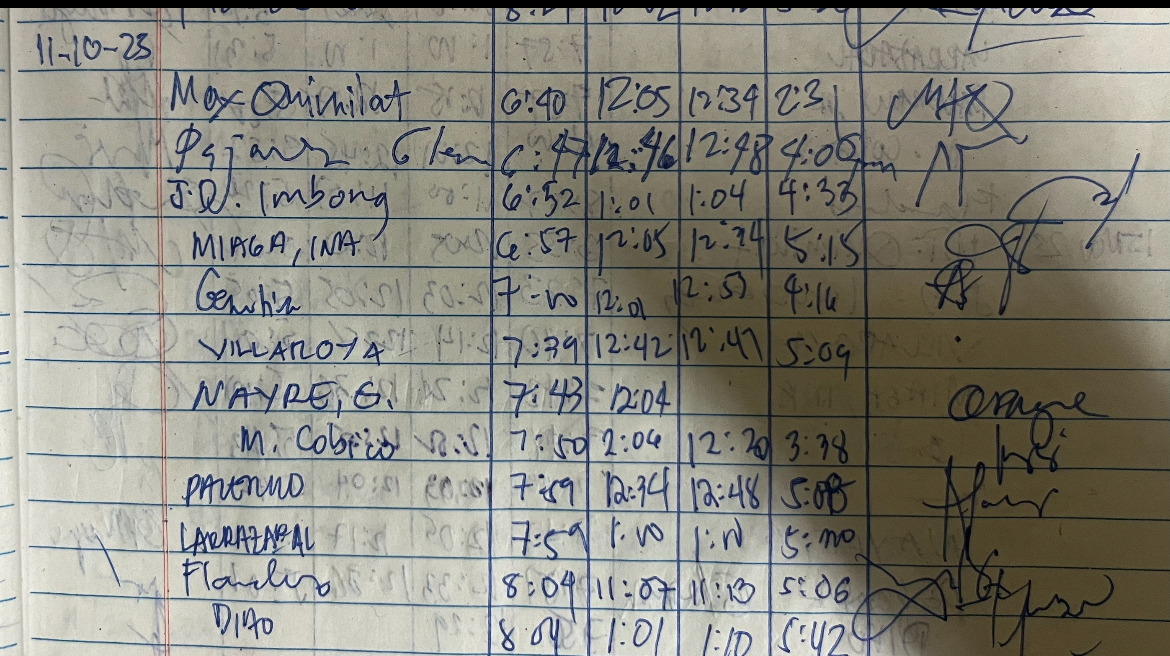 11-10-23
Max Quinilat 6:40 12:05 12:34 2:31 MAX
6:47 12:46 12:48 4:06
J.D. Imbong 6:52 1:01 1:04 4:33
MIAGA, INA 6:57 12:05 12:34 5:15
7:00 12:01 12:57 4:16
VILLAROYA 7:39 12:42 12:47 5:09
NAYRE, G. 7:43 12:04
M. Cobico 7:50 2:04 12:20 3:38
PALERMO 7:59 12:34 12:48 5:08
LARRAZABAL 7:59 1:00 1:10 5:00
Flandez 8:04 11:07 11:13 5:06
DIAO 8:04 1:01 1:10 5:42